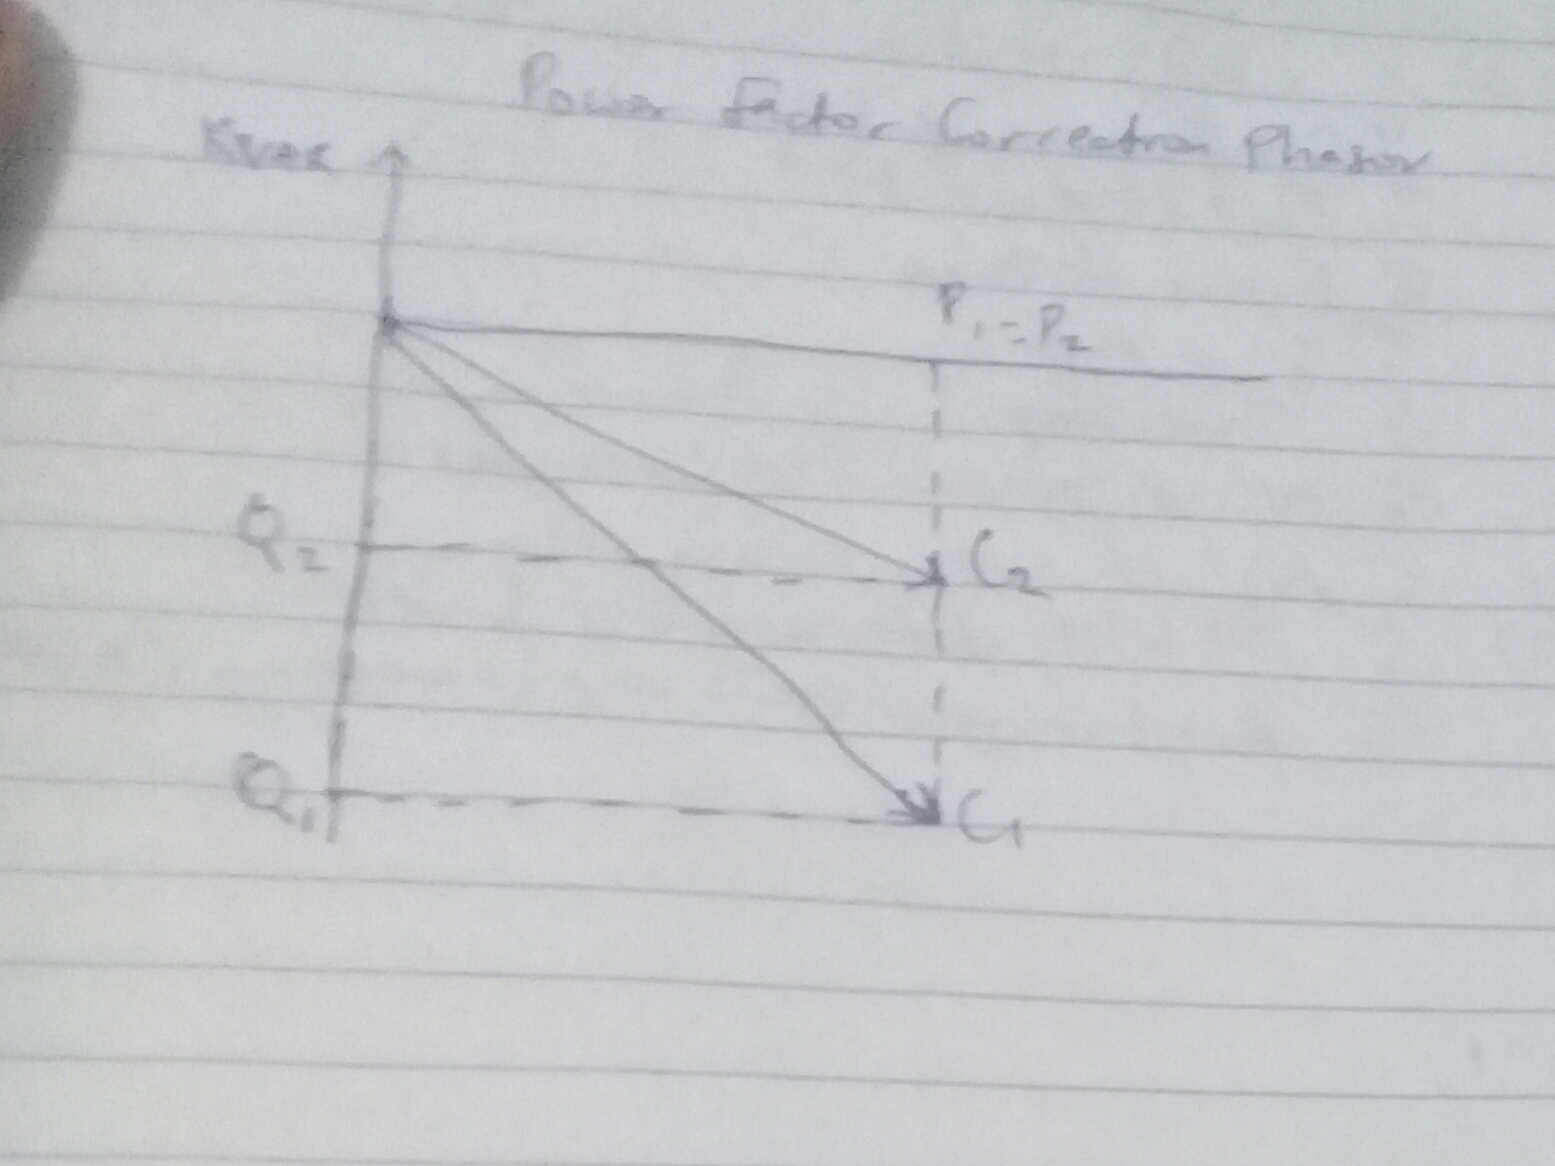 Power Factor Correction Phasor
KVAR
P₁ = P₂
Q₂
C₂
Q₁
C₁